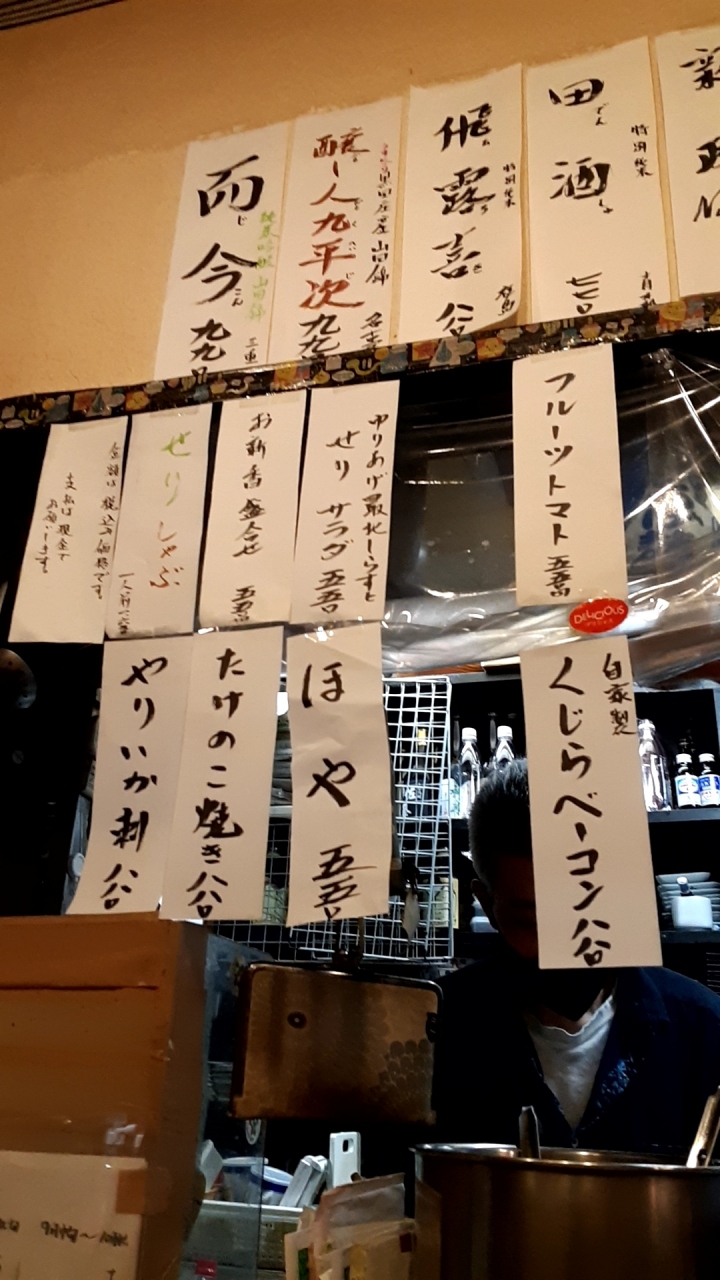 田酒
でん
しゅ
特別純米
七七〇
飛露喜
特別純米
福島
八八〇
醸し人九平次
黒田庄産山田錦
九九〇
而今
じ
こん
純米吟醸 山田錦
三重
九九〇
フルーツトマト 五五〇
DELICIOUS
ゆりあげ最北しらすと
せりサラダ 五五〇
お新香盛合せ 五五〇
せりしゃぶ
金額は税込み価格です。
支払は現金で
お願いします。
自家製
くじらベーコン 八八〇
ほや 五五〇
たけのこ焼き 八八〇
やりいか刺 八八〇